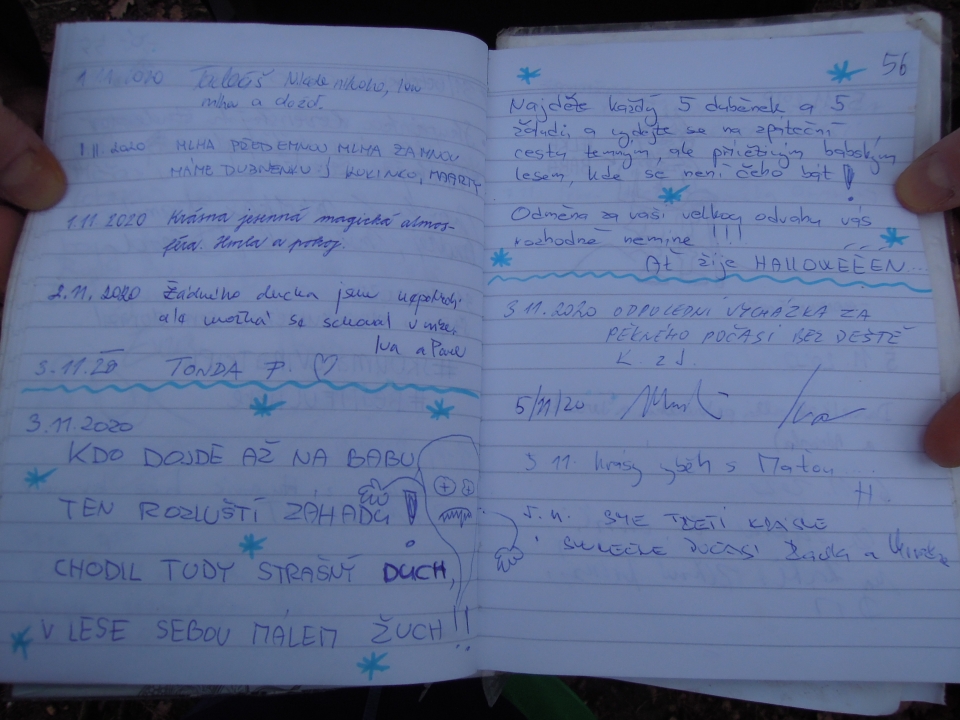 1.11.2020 Nikde nikoho, jen
mlha a
1.11.2020 MLHA PŘEDEMNOU MLHA ZAMNOU
MÁME
1.11.2020 Krásná jesenná magická atmos-
féra. Hmla a pokoj.
2.11.2020 Žádného ducha jsme nepotkali
ale možná se schoval v mlze.
Iva a Pavel
3.11.20 TONDA P. ♡
3.11.2020
KDO DOJDE AŽ NA BABU
TEN ROZLUŠTÍ ZÁHADU!
CHODIL TUDY STRAŠNÝ DUCH,
V LESE SEBOU MÁLEM ŽUCH!!
56
Najděte každý 5 duběnek a 5
žaludů, a vydejte se na zpáteční
cestu temným, ale přívětivým babským
lesem, kde se není čeho bát!
Odměna za vaši velkou odvahu vás
rozhodně nemine!!!
Ať žije HALLOWEEEN...
3.11.2020 ODPOLEDNÍ VYCHÁZKA ZA
PĚKNÉHO POČASÍ BEZ DEŠTĚ
K. z J.
5/11/20
5 11. krásný výběh s Maťou
H.
5.11. SME TDETI KRÁSNE
a